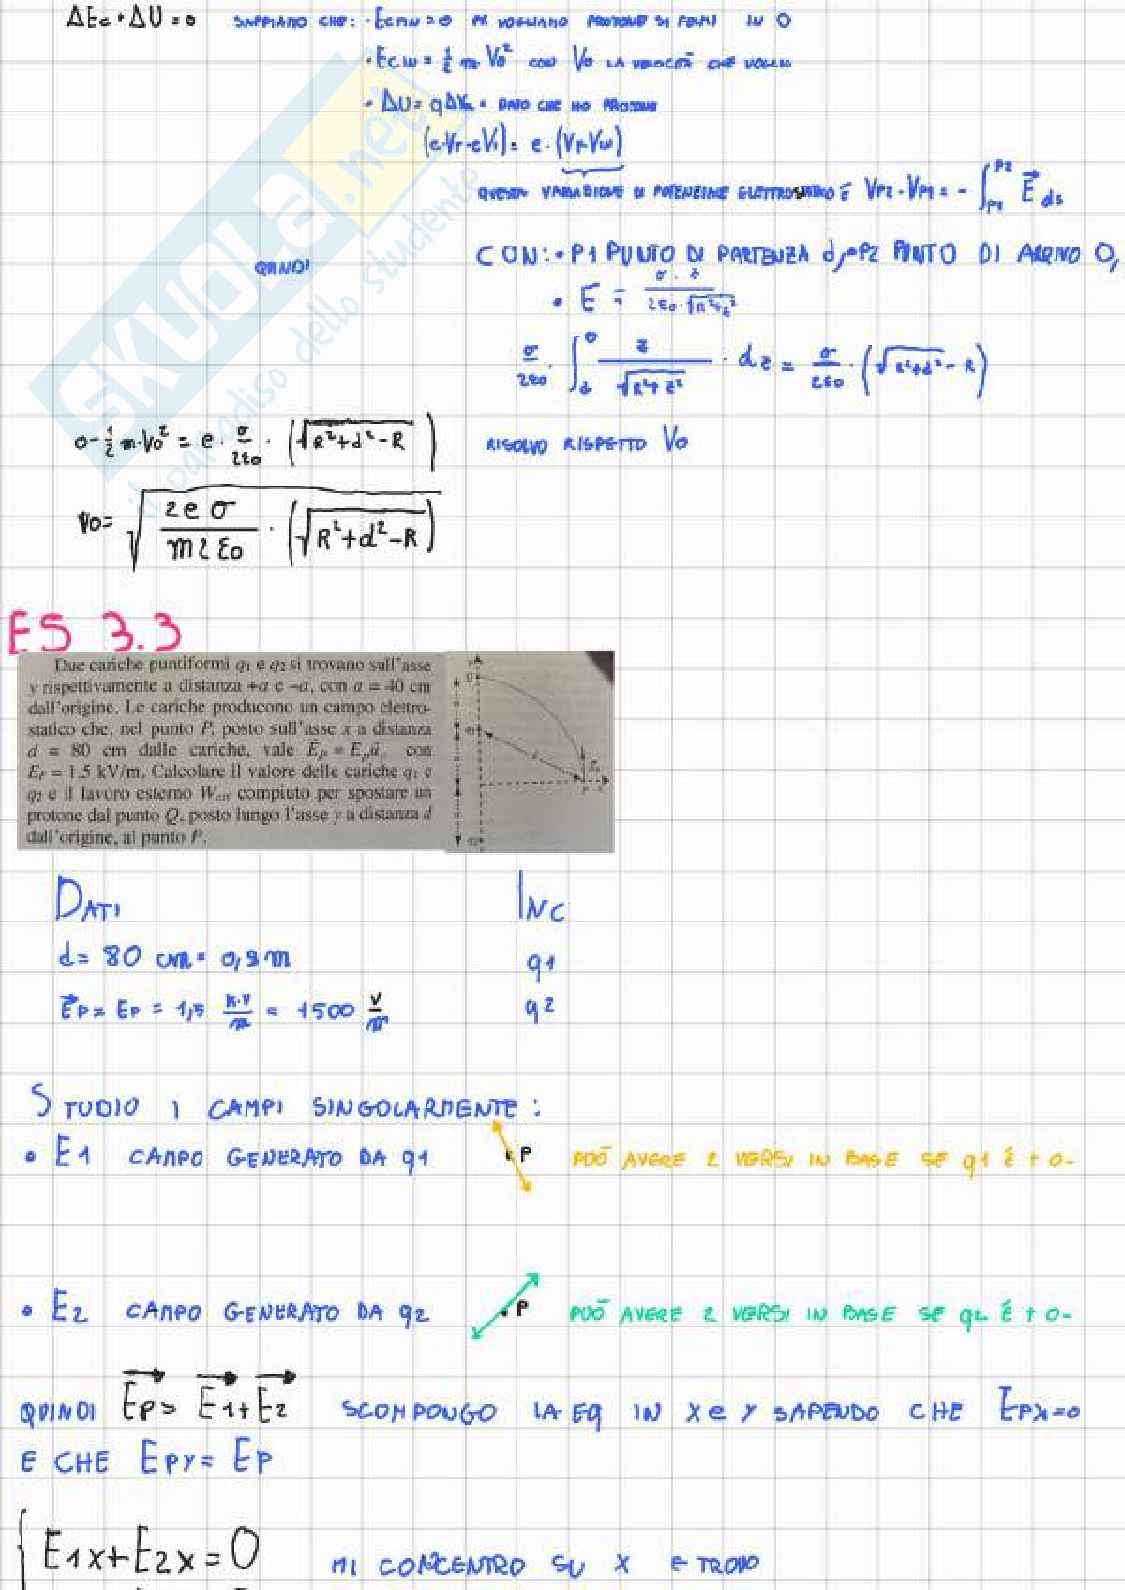 ΔEc + ΔU = 0 SAPPIAMO CHE: · Ecfin = 0 PK VOGLIAMO PROTONE SI FERMI IN O
· Ecin = 1/2 m V0² CON V0 LA VELOCITÀ CHE VOGLIO
· ΔU = qΔV DATO CHE HO PROTONE
(e·Vf - eVi) = e · (Vf - Vin)
QUESTA VARIAZIONE DI POTENZIALE ELETTROSTATICO È VP2 - VP1 = - ∫P1 P2 E ds
QUINDI CON: · P1 PUNTO DI PARTENZA d, · P2 PUNTO DI ARRIVO O,
· E = σ · z / 2ε0 · √R²+z²
σ/2ε0 · ∫d 0 z/√R²+z² · dz = σ/2ε0 · (√R²+d² - R)
0 - 1/2 m · V0² = e · σ/2ε0 · (√R²+d²-R) RISOLVO RISPETTO V0
V0 = √ 2eσ/m2ε0 · (√R²+d²-R)
ES 3.3
Due cariche puntiformi q1 e q2 si trovano sull'asse
y rispettivamente a distanza +a e -a, con a = 40 cm
dall'origine. Le cariche producono un campo elettro-
statico che, nel punto P, posto sull'asse x a distanza
d = 80 cm dalle cariche, vale Ep = Ep uy con
EP = 1.5 kV/m. Calcolare il valore delle cariche q1 e
q2 e il lavoro esterno West compiuto per spostare un
protone dal punto Q, posto lungo l'asse y a distanza d
dall'origine, al punto P.
DATI INC
d = 80 cm = 0,8m q1
EP = EP = 1,5 k·V/m = 1500 V/m q2
STUDIO I CAMPI SINGOLARMENTE:
· E1 CAMPO GENERATO DA q1 P PUÒ AVERE 2 VERSI IN BASE SE q1 È + O -
· E2 CAMPO GENERATO DA q2 P PUÒ AVERE 2 VERSI IN BASE SE q2 È + O -
QUINDI EP = E1 + E2 SCOMPONGO LA EQ IN X e Y SAPENDO CHE EPX=0
E CHE EPY = EP
E1X + E2X = 0 MI CONCENTRO SU X E TROVO
SKUOLA.net
il paradiso dello studente